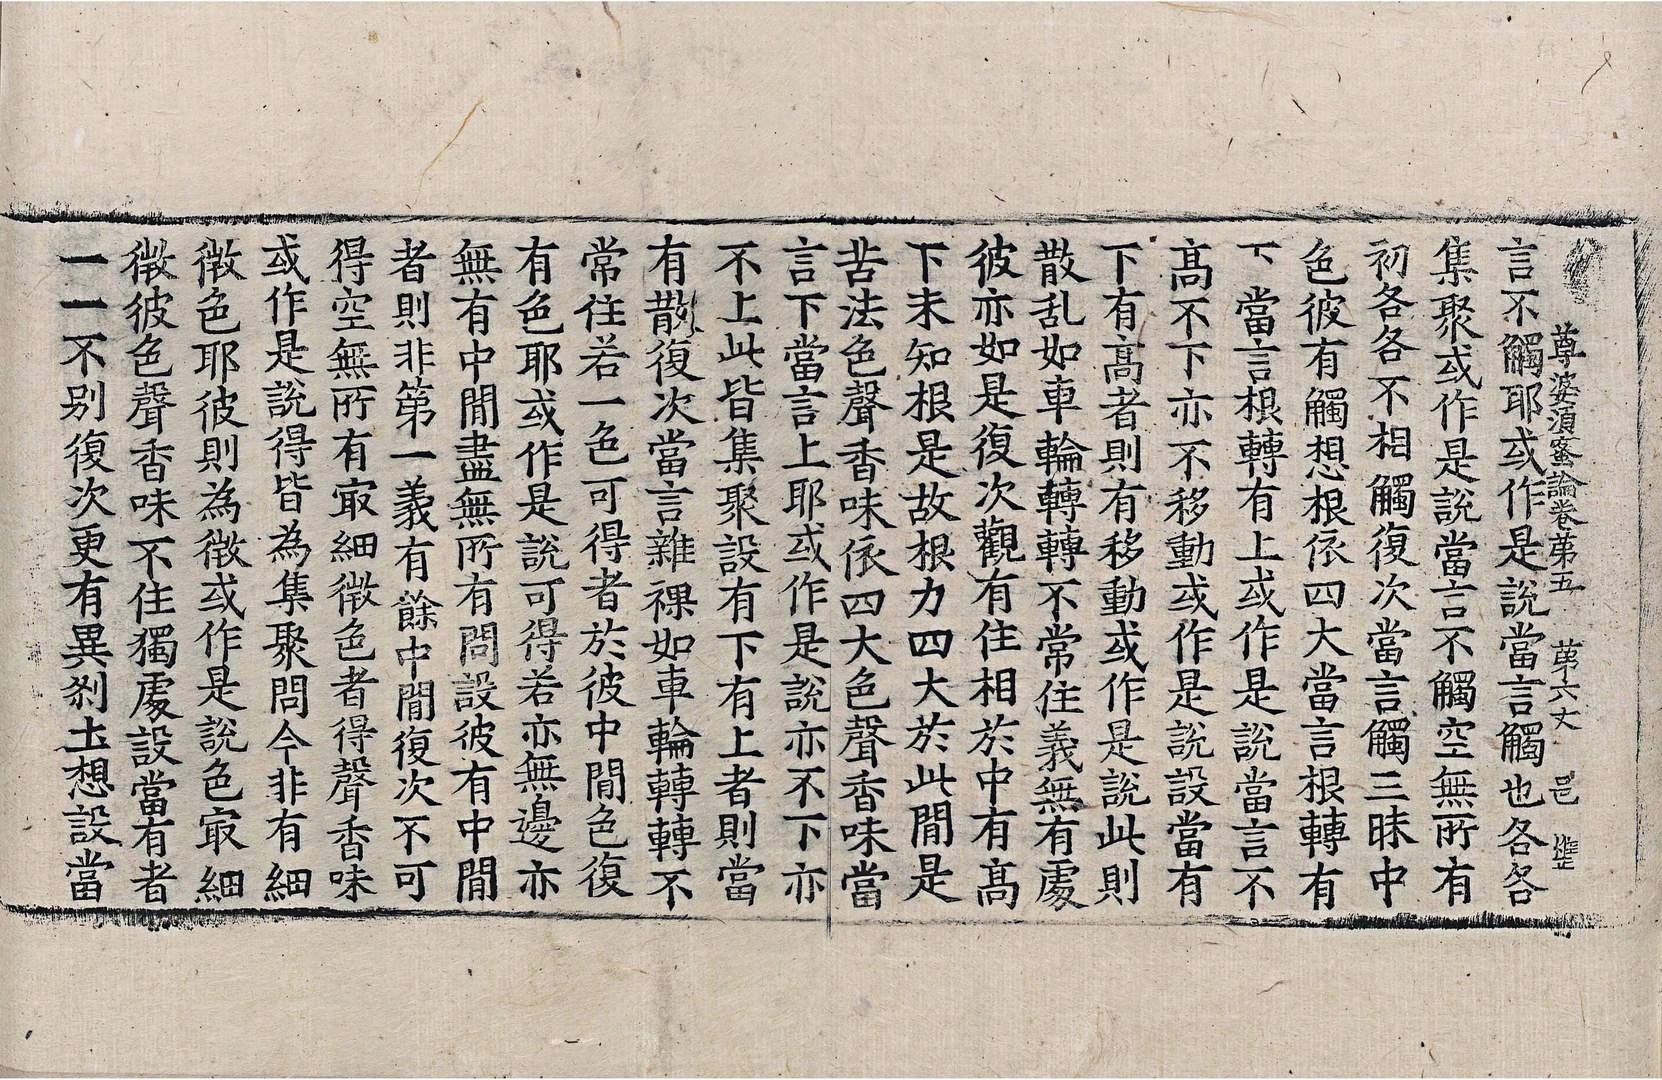 尊婆須蜜論卷第五 第六丈 邑
言不觸耶或作是說當言觸也各各
集聚或作是說當言不觸空無所有
初各各不相觸復次當言觸三昧中
色彼有觸想根依四大當言根轉有
下當言根轉有上或作是說當言不
髙不下亦不移動或作是說設當有
下有髙者則有移動或作是說此則
散乱如車輪轉轉不常住義無有處
彼亦如是復次觀有住相於中有髙
下未知根是故根力四大於此閒是
苦法色聲香味依四大色聲香味當
言下當言上耶或作是說亦不下亦
不上此皆集聚設有下有上者則當
有散復次當言雜裸如車輪轉轉不
常住若一色可得者於彼中閒色復
有色耶或作是說可得若亦無邊亦
無有中閒盡無所有問設彼有中閒
者則非第一義有餘中閒復次不可
得空無所有㝡細微色者得聲香味
或作是說得皆為集聚問今非有細
微色耶彼則為微或作是說色㝡細
微彼色聲香味不住獨處設當有者
一一不別復次更有異刹土想設當